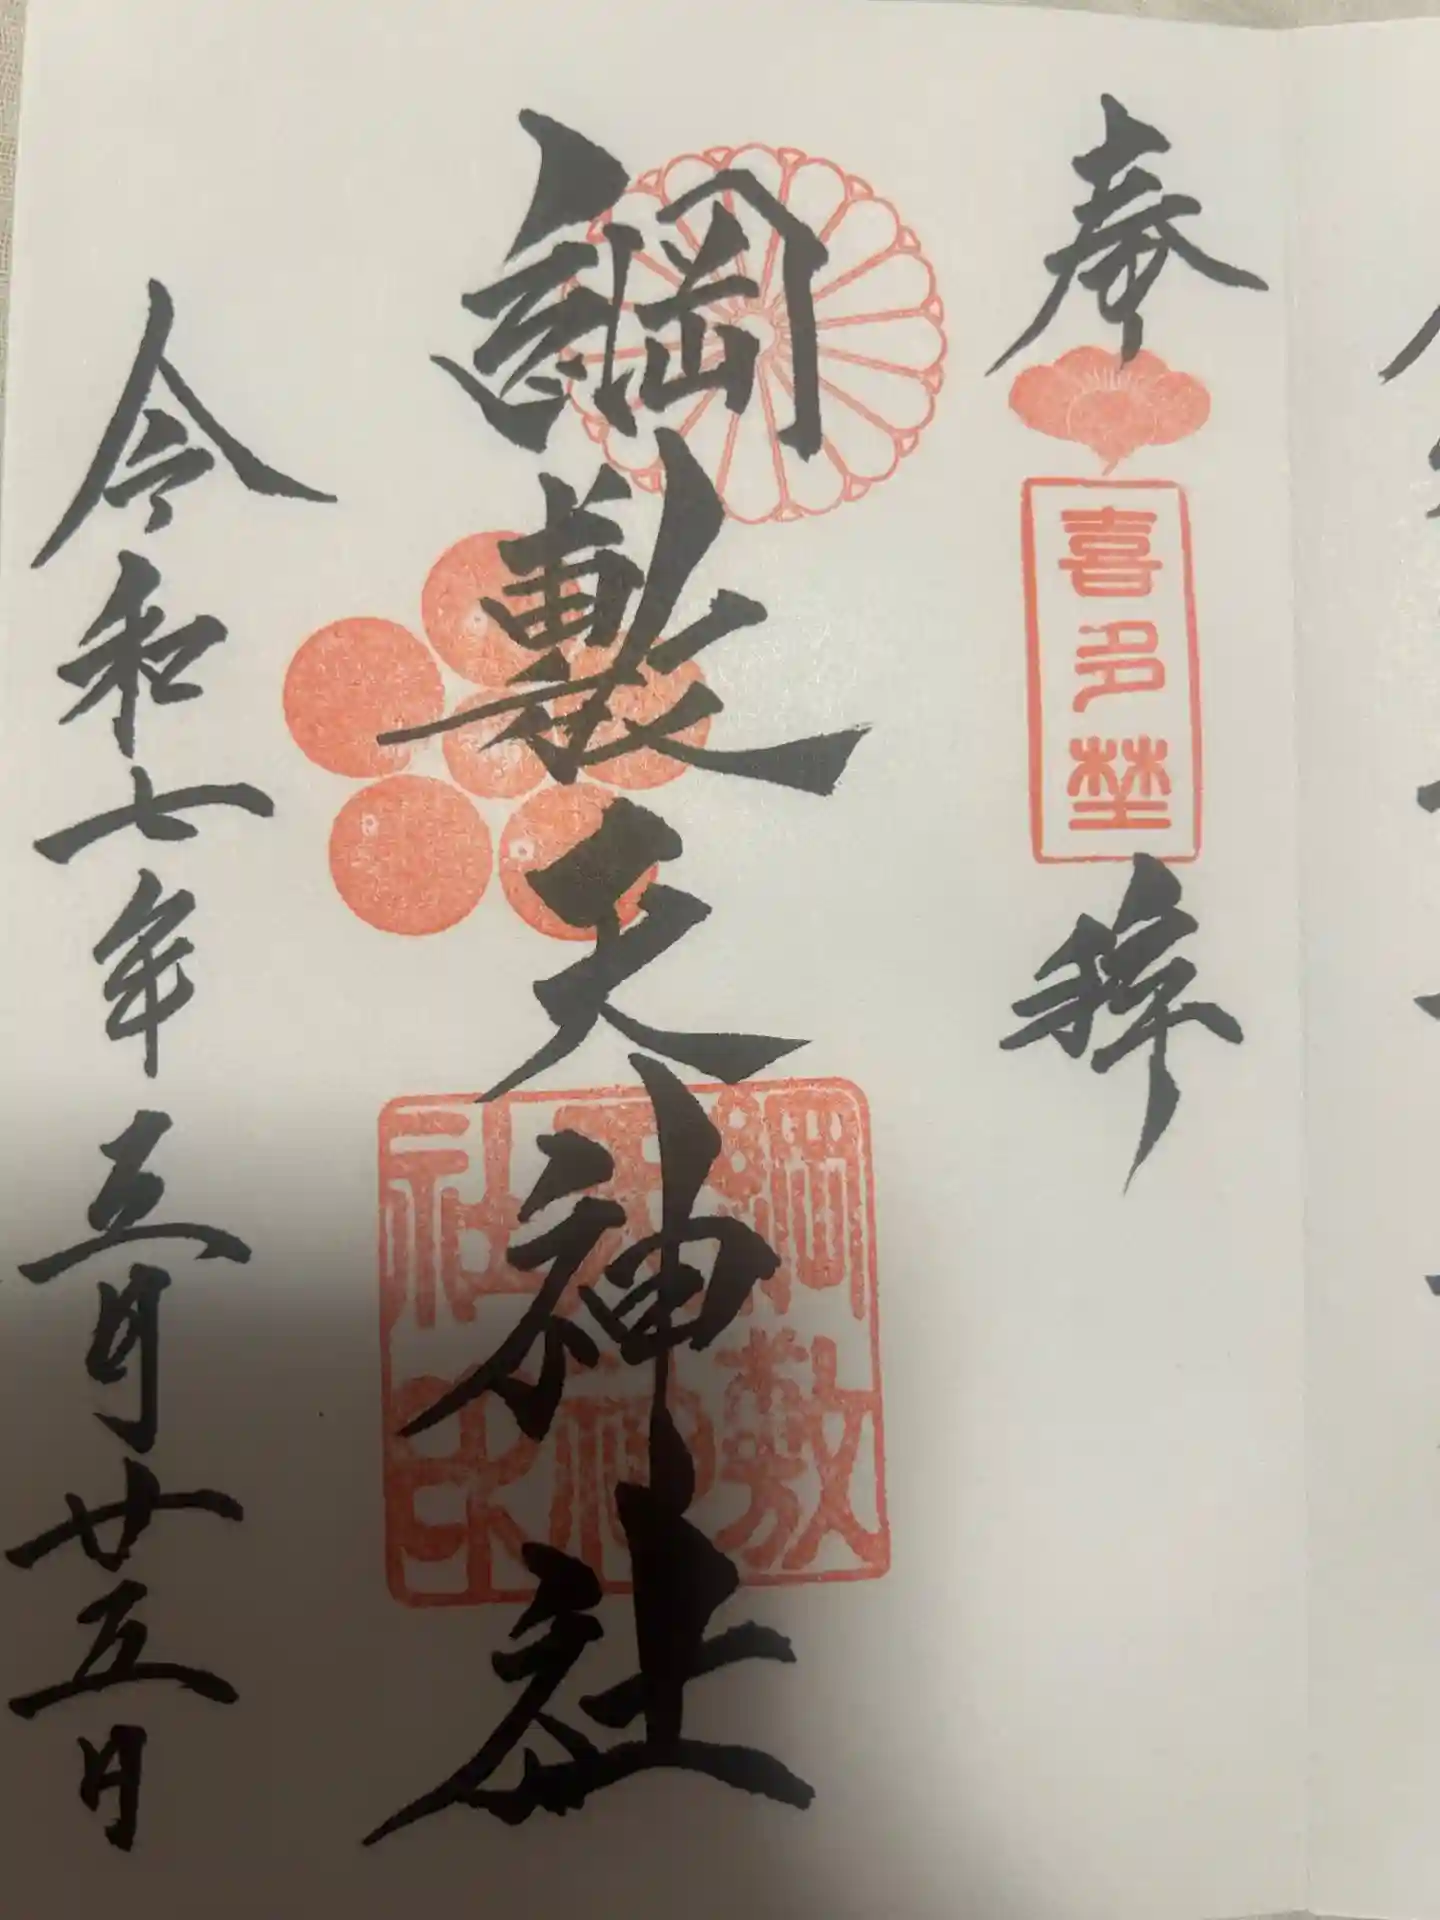 奉拝
喜多埜
綱敷天神社
綱敷天神社印
令和七年五月廿五日